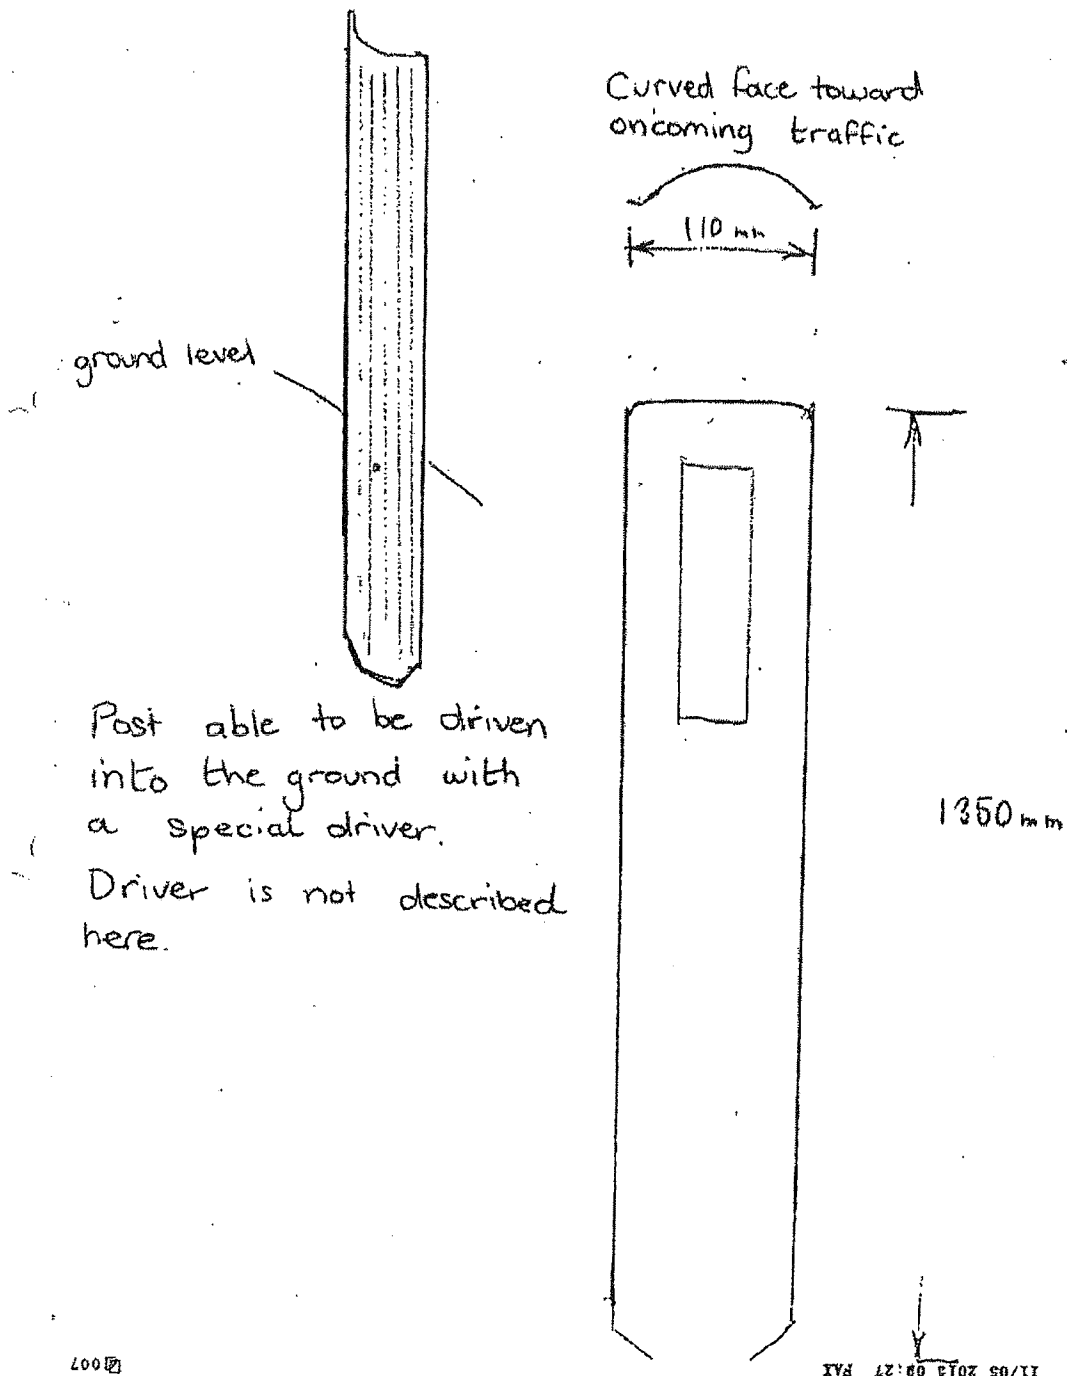 Curved face toward
oncoming traffic
110 mm
ground level
Post able to be driven
into the ground with
a special driver.
Driver is not described
here.
1350 mm
007
11/05 2015 09:27 FAX